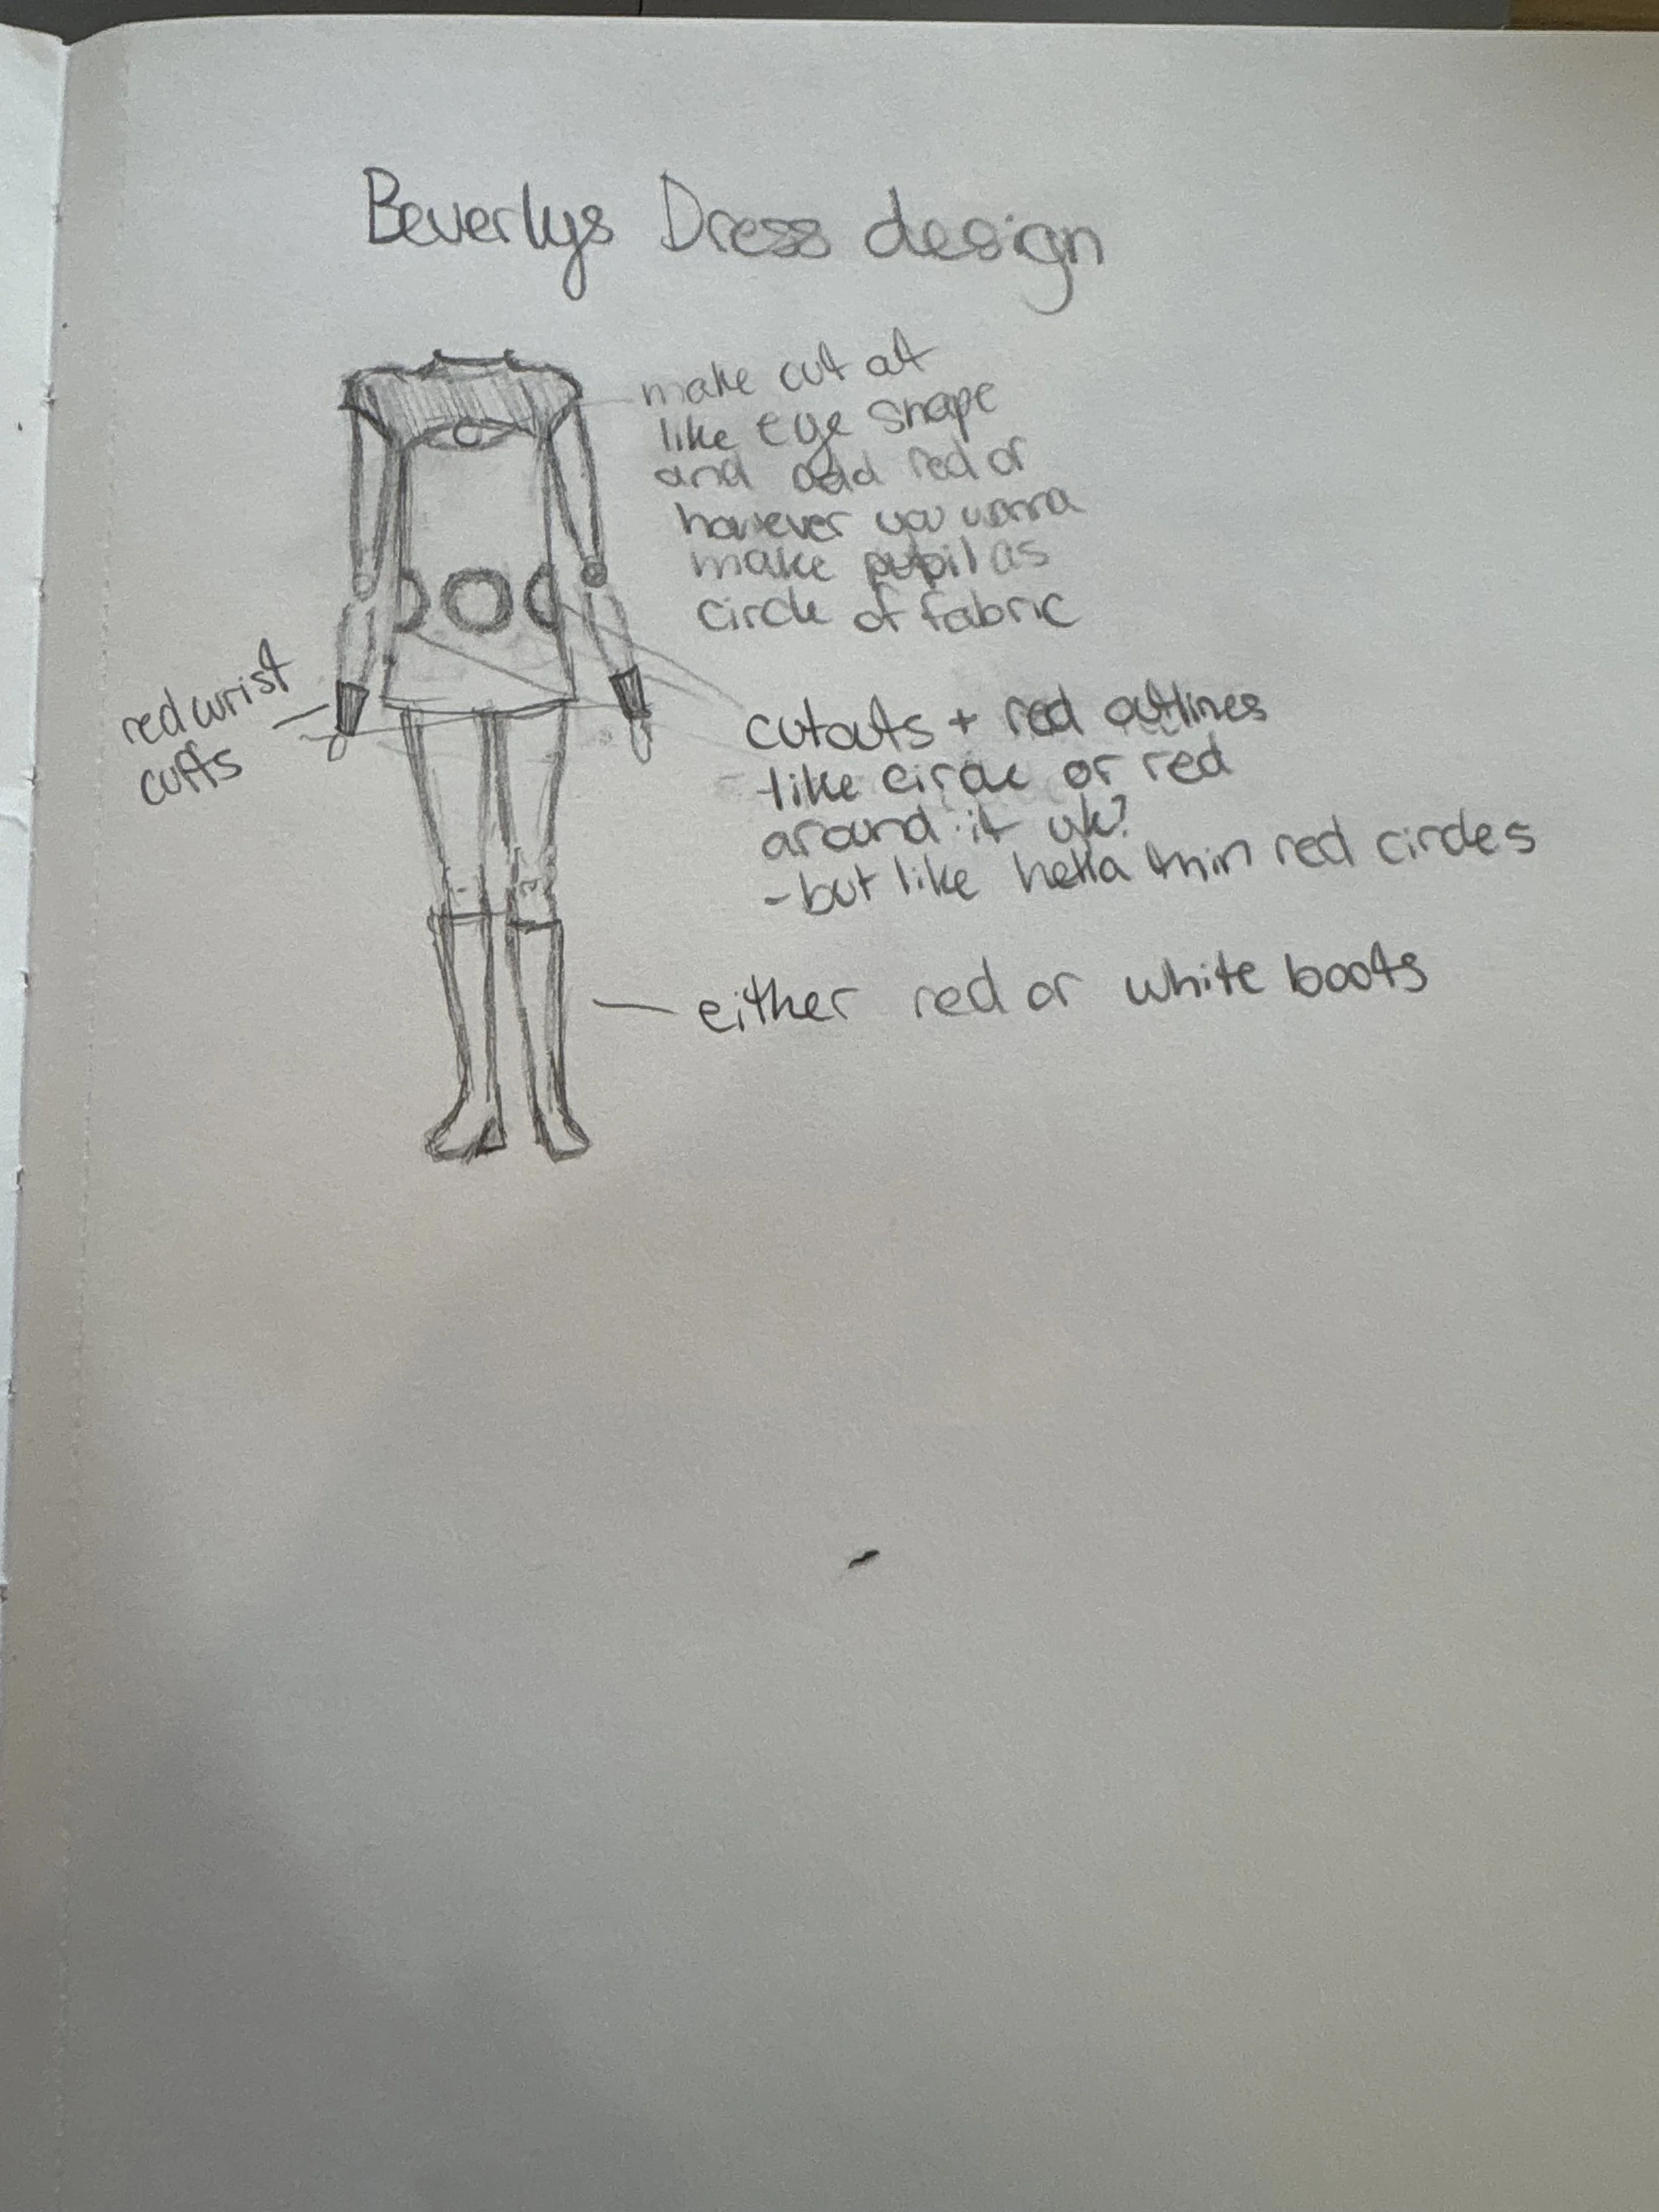 Beverlys Dress design
make cut at
like eye shape
and add red or
however you wanna
make pupil as
circle of fabric
red wrist
cuffs
cutouts + red outlines
-like circle or red
around it yk?
-but like hella thin red circles
either red or white boots